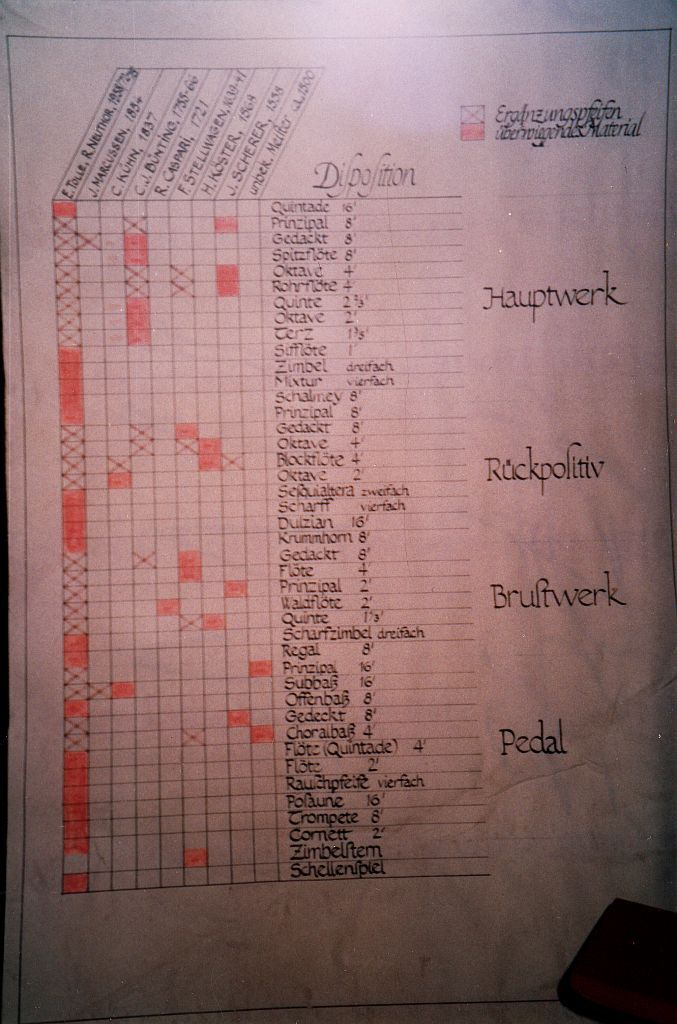 E. Tolle, R. Neuthor,
J. MARCUSSEN, 1854
C. KÜHN, 1837
C.J. BÜNTING, 1755-66
R. CASPARI, 1721
F. STELLWAGEN, 1639-41
H. KÖSTER, 1564
J. SCHERER, 1558
unbek. Meister ca. 1500
Ergänzungspfeifen
überwiegendes Material
Diſpoſition
Quintade 16'
Prinzipal 8'
Gedackt 8'
Spitzflöte 8'
Oktave 4'
Rohrflöte 4'
Quinte 2 ⅔'
Oktave 2'
Terz 1 ⅗'
Sifflöte 1'
Zimbel dreifach
Mixtur vierfach
Schalmey 8'
Hauptwerk
Prinzipal 8'
Gedackt 8'
Oktave 4'
Blockflöte 4'
Oktave 2'
Seſquialtera zweifach
Scharff vierfach
Dulzian 16'
Krummhorn 8'
Rückpoſitiv
Gedackt 8'
Flöte 4'
Prinzipal 2'
Waldflöte 2'
Quinte 1 ⅓'
Scharfzimbel dreifach
Regal 8'
Bruſtwerk
Prinzipal 16'
Subbaß 16'
Offenbaß 8'
Gedeckt 8'
Choralbaß 4'
Flöte (Quintade) 4'
Flöte 2'
Rauſchpfeife vierfach
Poſaune 16'
Trompete 8'
Cornett 2'
Zimbelſtern
Schellenſpiel
Pedal